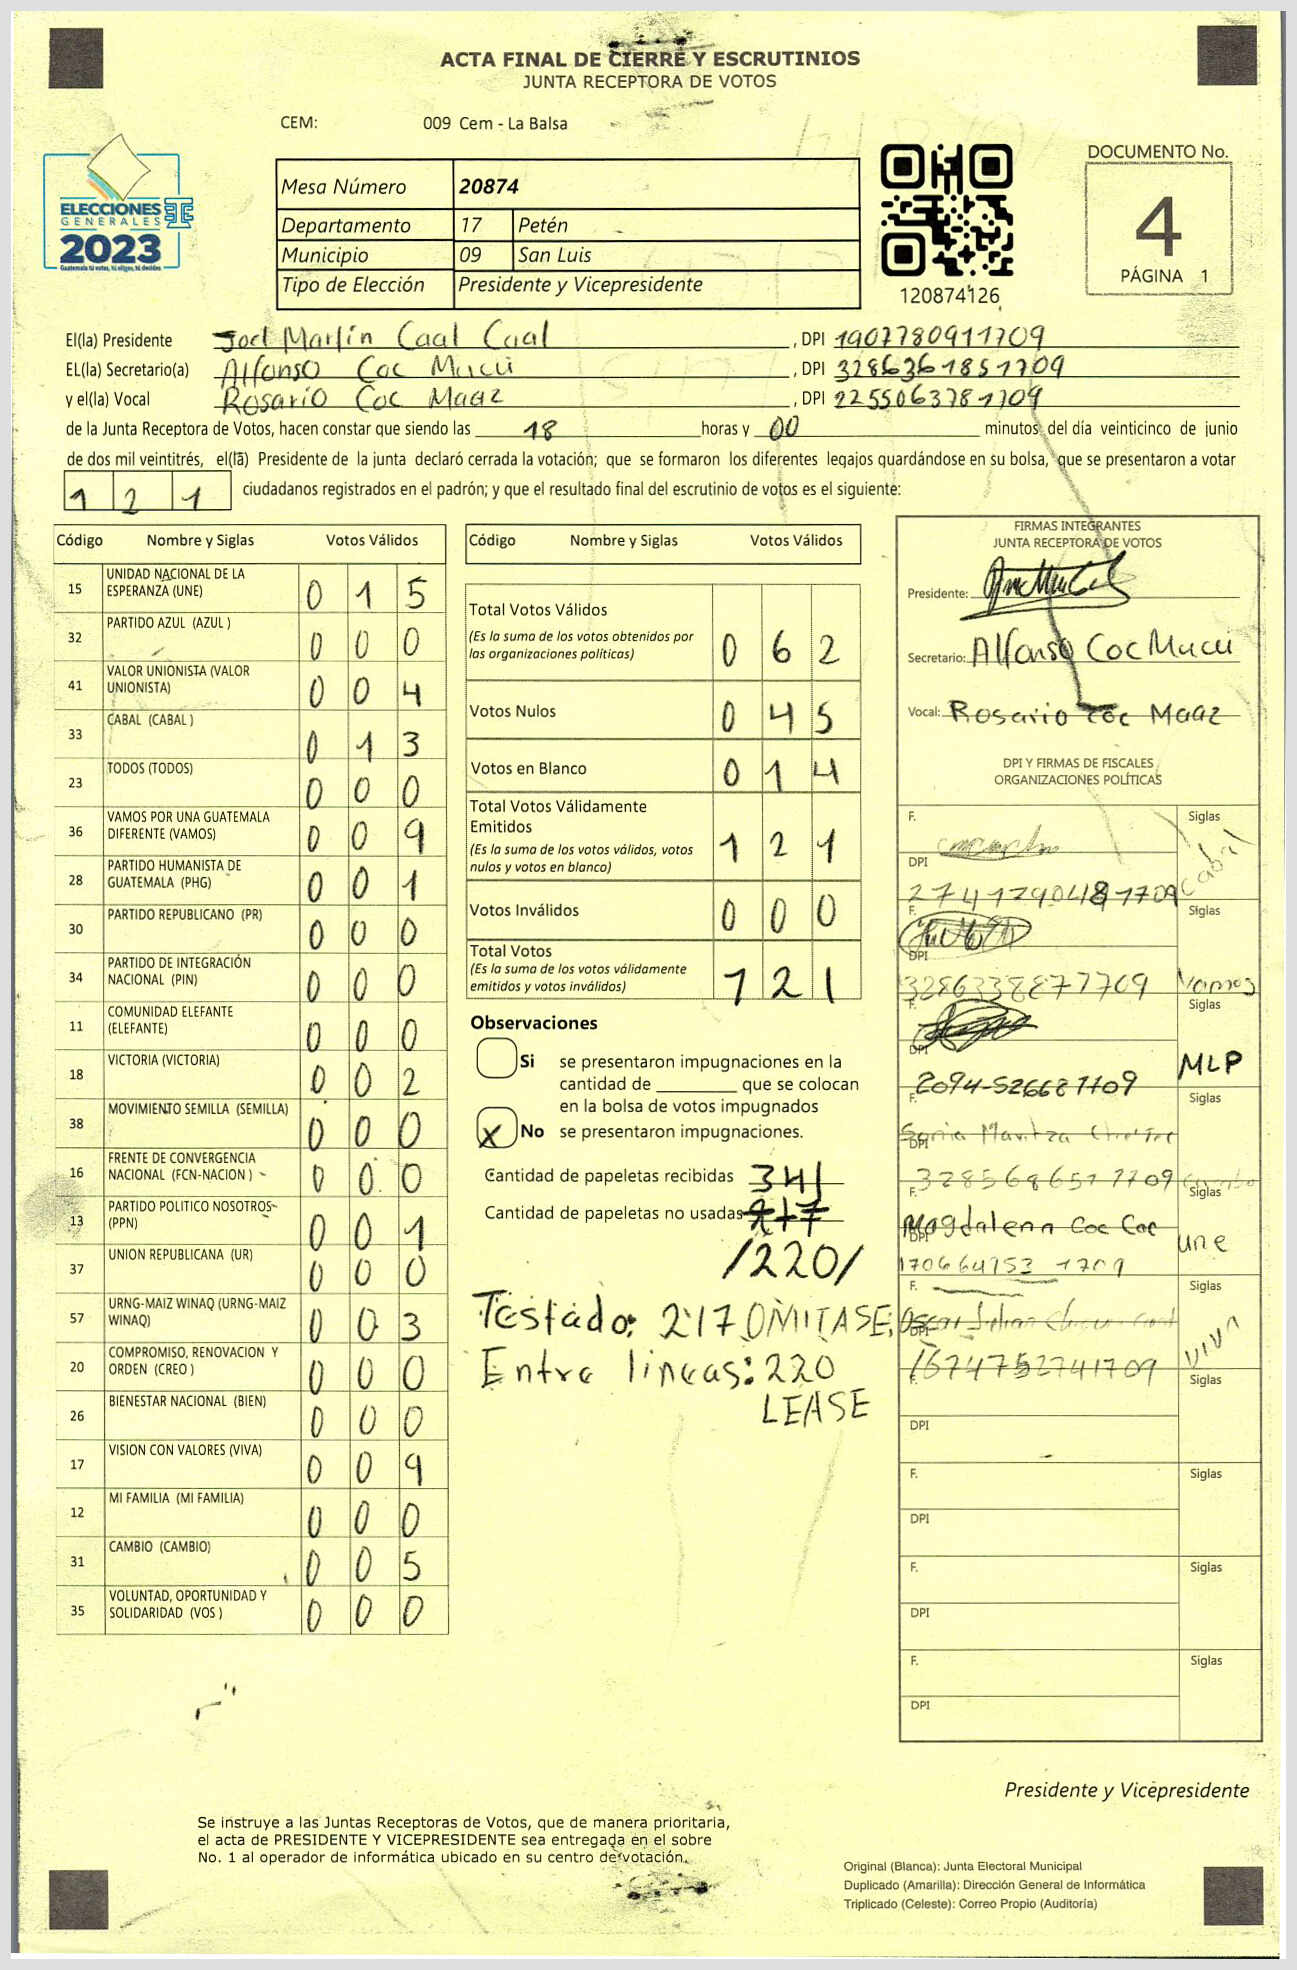 ACTA FINAL DE CIERRE Y ESCRUTINIOS
JUNTA RECEPTORA DE VOTOS
CEM: 009 Cem - La Balsa
ELECCIONES
GENERALES
2023
Guatemala tú votas, tú eliges, tú decides
Mesa Número 20874
Departamento 17 Petén
Municipio 09 San Luis
Tipo de Elección Presidente y Vicepresidente
120874126
DOCUMENTO No.
4
PÁGINA 1
El(la) Presidente Joel Marlin Caal Caal, DPI 1907780911709
EL(la) Secretario(a) Alfonso Coc Mucú, DPI 3286361851709
y el(la) Vocal Rosario Coc Maaz, DPI 2255063781709
de la Junta Receptora de Votos, hacen constar que siendo las 18 horas y 00 minutos del día veinticinco de junio
de dos mil veintitrés, el(la) Presidente de la junta declaró cerrada la votación; que se formaron los diferentes legajos guardándose en su bolsa, que se presentaron a votar
121 ciudadanos registrados en el padrón; y que el resultado final del escrutinio de votos es el siguiente:
Código Nombre y Siglas Votos Válidos
15 UNIDAD NACIONAL DE LA ESPERANZA (UNE) 0 1 5
32 PARTIDO AZUL (AZUL ) 0 0 0
41 VALOR UNIONISTA (VALOR UNIONISTA) 0 0 4
33 CABAL (CABAL ) 0 1 3
23 TODOS (TODOS) 0 0 0
36 VAMOS POR UNA GUATEMALA DIFERENTE (VAMOS) 0 0 9
28 PARTIDO HUMANISTA DE GUATEMALA (PHG) 0 0 1
30 PARTIDO REPUBLICANO (PR) 0 0 0
34 PARTIDO DE INTEGRACIÓN NACIONAL (PIN) 0 0 0
11 COMUNIDAD ELEFANTE (ELEFANTE) 0 0 0
18 VICTORIA (VICTORIA) 0 0 2
38 MOVIMIENTO SEMILLA (SEMILLA) 0 0 0
16 FRENTE DE CONVERGENCIA NACIONAL (FCN-NACION ) 0 0 0
13 PARTIDO POLITICO NOSOTROS (PPN) 0 0 1
37 UNION REPUBLICANA (UR) 0 0 0
57 URNG-MAIZ WINAQ (URNG-MAIZ WINAQ) 0 0 3
20 COMPROMISO, RENOVACION Y ORDEN (CREO ) 0 0 0
26 BIENESTAR NACIONAL (BIEN) 0 0 0
17 VISION CON VALORES (VIVA) 0 0 9
12 MI FAMILIA (MI FAMILIA) 0 0 0
31 CAMBIO (CAMBIO) 0 0 5
35 VOLUNTAD, OPORTUNIDAD Y SOLIDARIDAD (VOS ) 0 0 0
Código Nombre y Siglas Votos Válidos
Total Votos Válidos 0 6 2
(Es la suma de los votos obtenidos por
las organizaciones políticas)
Votos Nulos 0 4 5
Votos en Blanco 0 1 4
Total Votos Válidamente
Emitidos 1 2 1
(Es la suma de los votos válidos, votos
nulos y votos en blanco)
Votos Inválidos 0 0 0
Total Votos 1 2 1
(Es la suma de los votos válidamente
emitidos y votos inválidos)
Observaciones
Si se presentaron impugnaciones en la
cantidad de ________ que se colocan
en la bolsa de votos impugnados
X No se presentaron impugnaciones.
Cantidad de papeletas recibidas 341
Cantidad de papeletas no usadas 217
/220/
Testado: 217 OMITASE,
Entre lineas: 220
LEASE
FIRMAS INTEGRANTES
JUNTA RECEPTORA DE VOTOS
Presidente:
Secretario: Alfonso Coc Mucú
Vocal: Rosario Coc Maaz
DPI Y FIRMAS DE FISCALES
ORGANIZACIONES POLÍTICAS
F. Siglas
DPI
2741790481709 Cabal
F. Siglas
DPI
3286338871709 Vamos
F. Siglas
DPI MLP
F. Siglas
DPI
3285686511709
F. Siglas
Magdalena Coc Coc
DPI une
F. Siglas
DPI VIVA
1674752741709
F. Siglas
DPI
F. Siglas
DPI
F. Siglas
DPI
F. Siglas
DPI
Presidente y Vicepresidente
Se instruye a las Juntas Receptoras de Votos, que de manera prioritaria,
el acta de PRESIDENTE Y VICEPRESIDENTE sea entregada en el sobre
No. 1 al operador de informática ubicado en su centro de votación.
Original (Blanca): Junta Electoral Municipal
Duplicado (Amarilla): Dirección General de Informática
Triplicado (Celeste): Correo Propio (Auditoría)